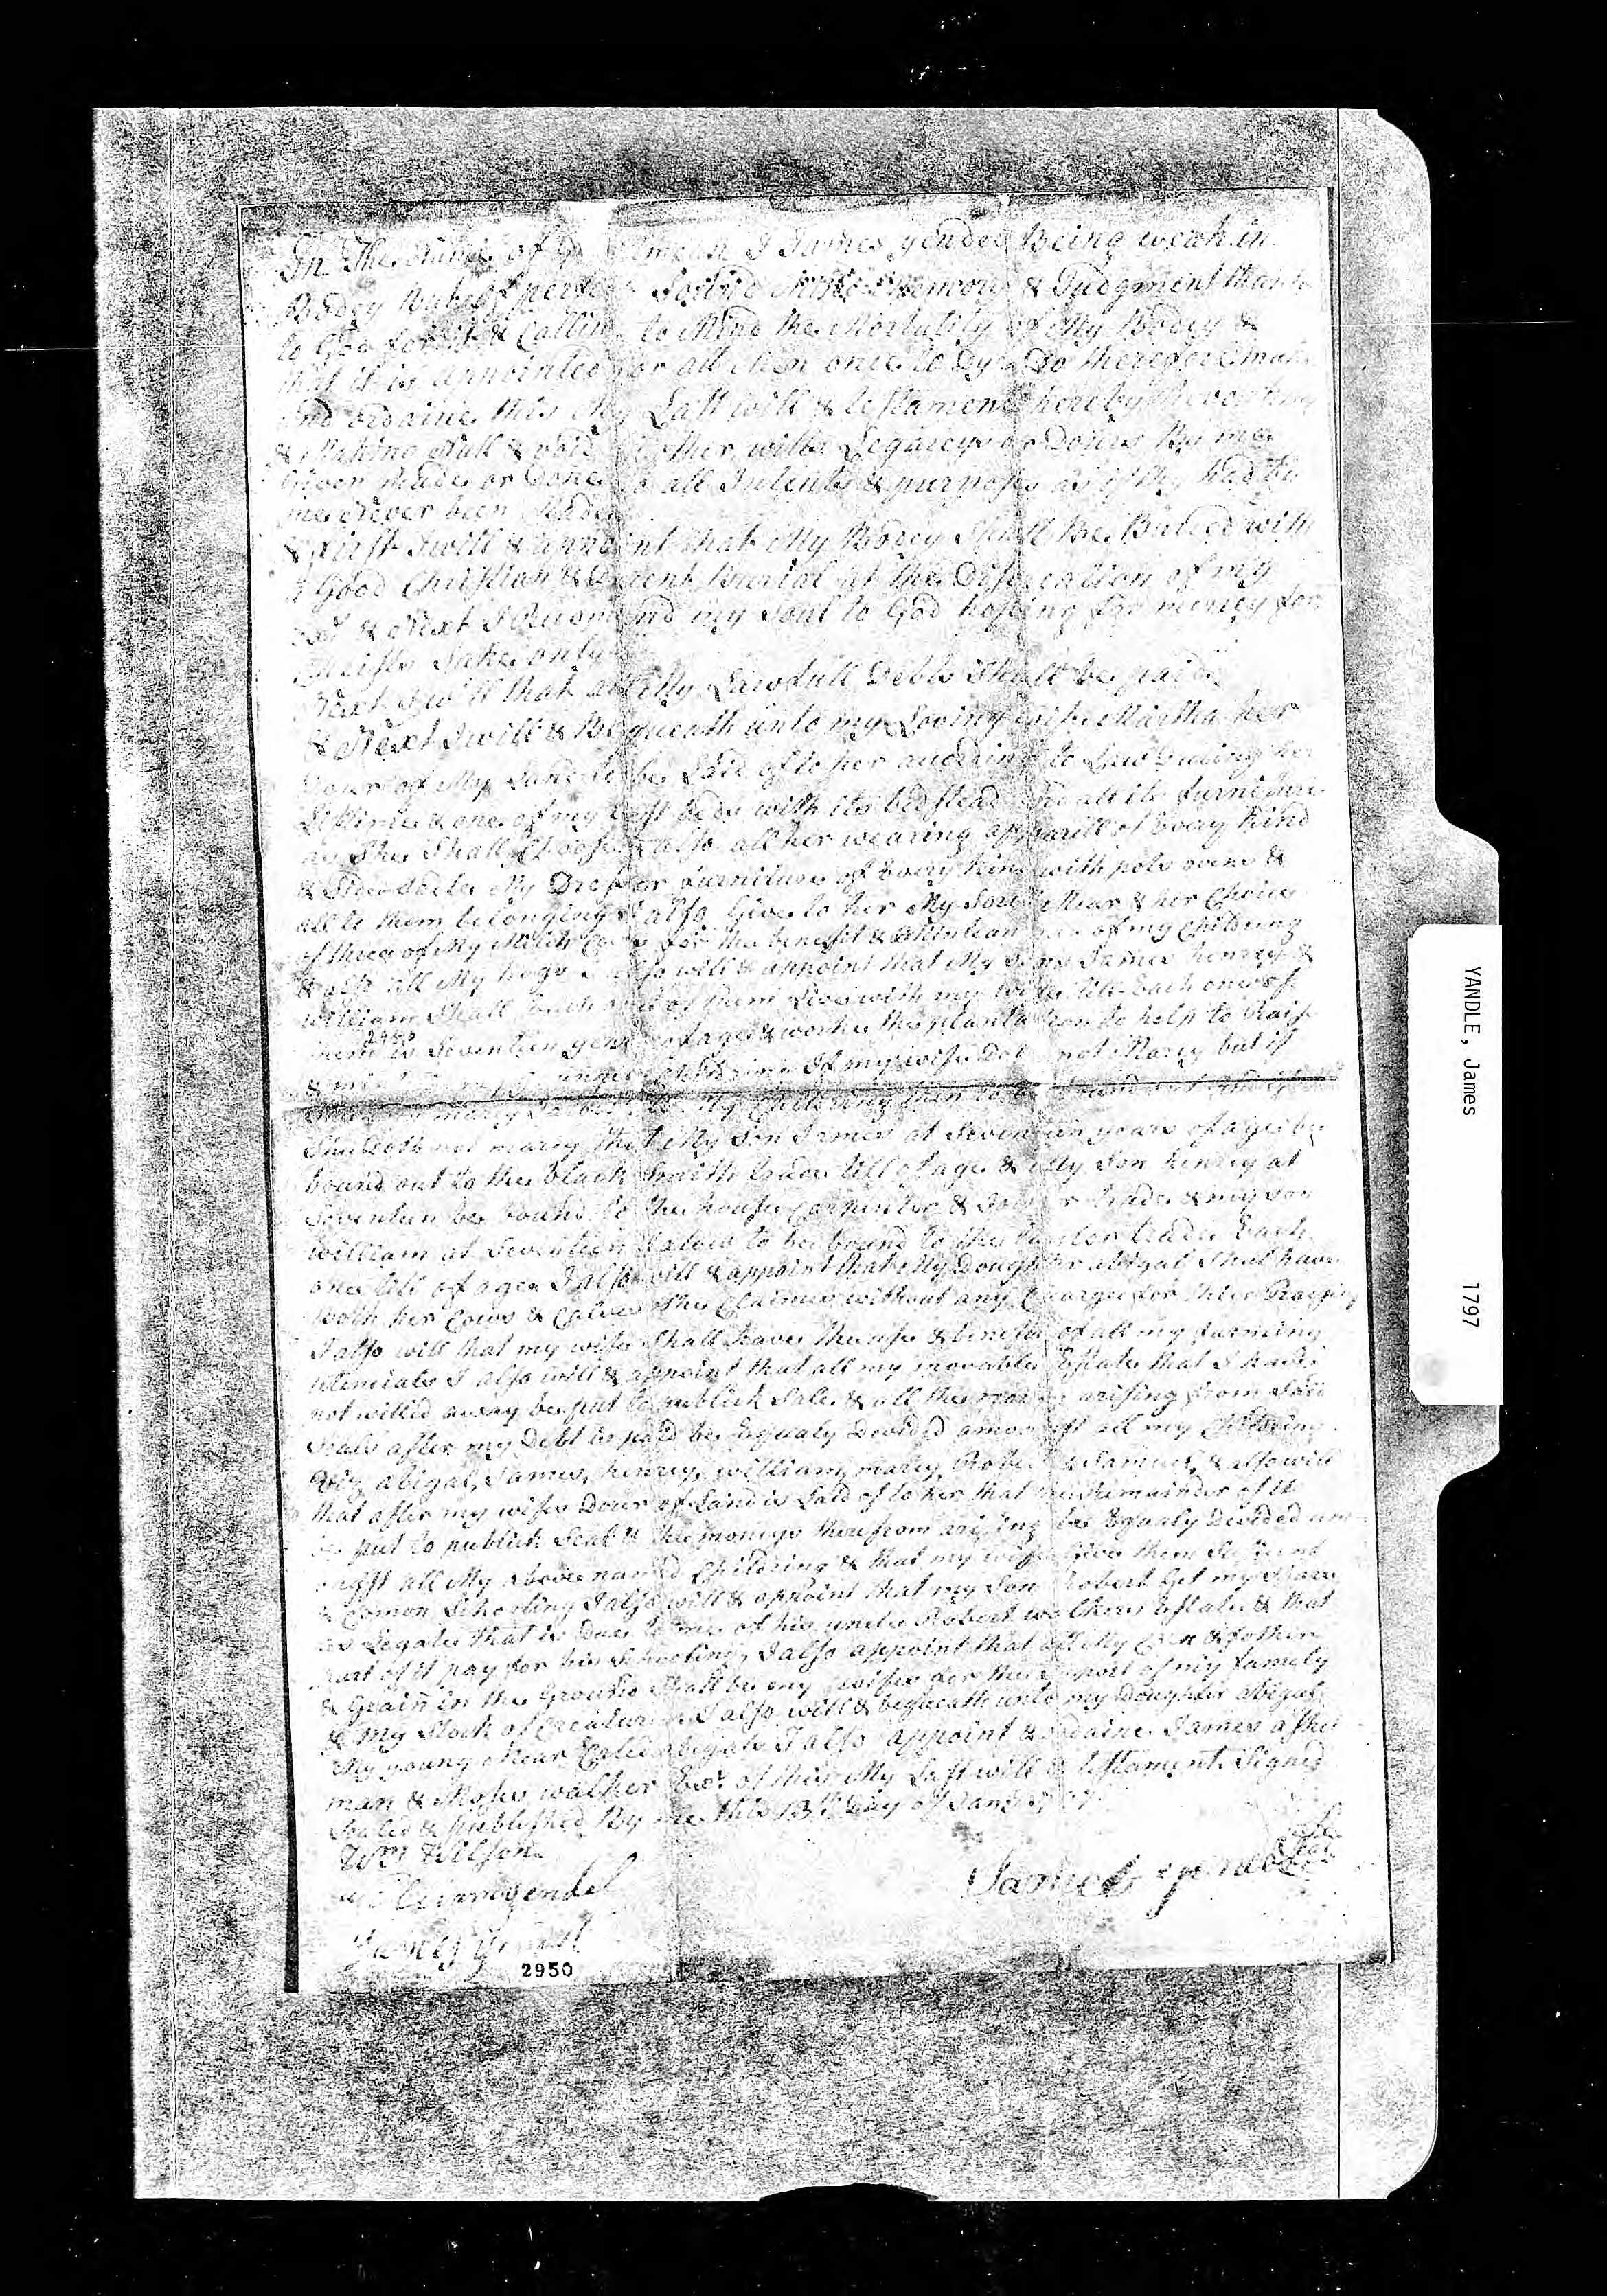 In the Name of God Amean I James yendel Being weak in
Bodey But of perfect Mind Memory & Judgment thanks
to God for it & Calling to Mind the Mortality of My Bodey &
that it is appointed for all Men once to Dye Do therefore make
and ordaine this My Last will & testament hereby Revoking
& Making Null & void all other wills Legaceys or By me
Given Made or Done to all Intents & purposes as if they had By
me Never been Made
& first I will & appoint that My Bodey Shall Be Buried with
a Good Christian & Decent Burial at the Discreation of my
& Next I Recomend my Soul to God hoping for mercey for
Christs Sake only
Next I will that all My Lawfull Debts Shall be paide
& Next I will & Bequeath unto my Loving wife Martha her
Dour of My Land to be Laid of to her according to Law During her
Liftime & one of my best beds with its bedstead and all its furniture
as She Shall Choose & also all her wearing apparill of Every kind
& My Dresser furniture of Every kind with pots ovens &
all to them belonging I also Give to her My Sorel Mear & her Choice
of three of My Milch Cows for the benefit & Menteanance of my Childring
& also all My hogs I also will & appoint that My Sons James henrey &
William Shall Each one of them Live with my wife till Each one of
2950
them is Seventeen years of age & worke the plantation to help to Raise
If my wife Doth not Marey but if
marey My Childring then to be bound out And if
She Doth not marey that My Son James at Seventeen years of age be
bound out to the black Smith trade till of age & My Son henrey at
Seventeen be bound to the house Carpinter & Joiner trade & my son
William at Seventeen I alow to be bound to the trade Each
one till of age I also will & appoint that My Doughter abigal Shal have
both her Cows & Calves She Claimes without any Charge for thier Raising
I also will that my wife Shall have the use & benefit of all my farming
utencials I also will & appoint that all my movable Estate that I have
not willed away be put to publick Sale & all the money arising from Said
Seals after my Debt is paid be Equaly Devided amongst all my Childring
Viz abigal, James, henrey, william, marey, Robert & Samuel, & also will
that after my wifes Dour of Land is Laid of to her that the Remainder of it
be put to publick Seal & the moneys therefrom arising be Equaly Devided am
ongst all My above named Childring & that my wife Give them
& Comon Schooling I also will & appoint that my Son Robert Get my Share
as Legate that is Due to me of his uncle Robert walkers Estate & that
part of it pay for his Schooling, I also appoint that all My Corn & fother
& Grain in the Ground Shall be my wifes for the Support of my family
& My Stock of Creatures I also will & bequeath unto my Doughter abigal
My young Mear Caled I also appoint & ordaine James
man & Moses walker Exrs of this My Last will & testament Signed
Sealed & published By me this 13th Day of Jany 1797
Wm Wilson
yendel
James yendel
James yendel
Seal
2950
YANDLE, James
1797